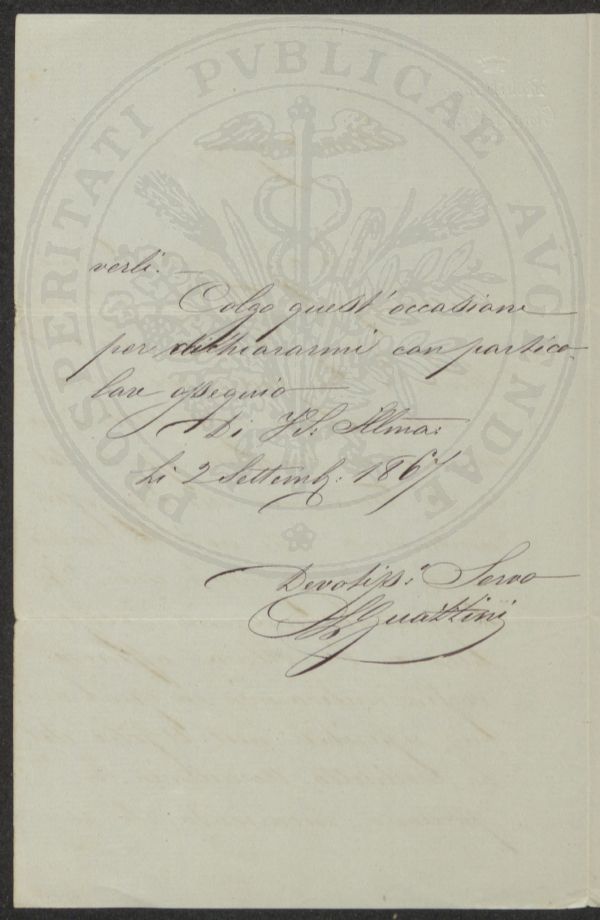 PROSPERITATI PVBLICAE AVGENDAE
verli. —
Colgo quest' occasione
per dichiararmi con partico-
lare ossequio
Di VS: Illma:
Li 2 Settemb: 1867
Devotiss: Servo
Guattini